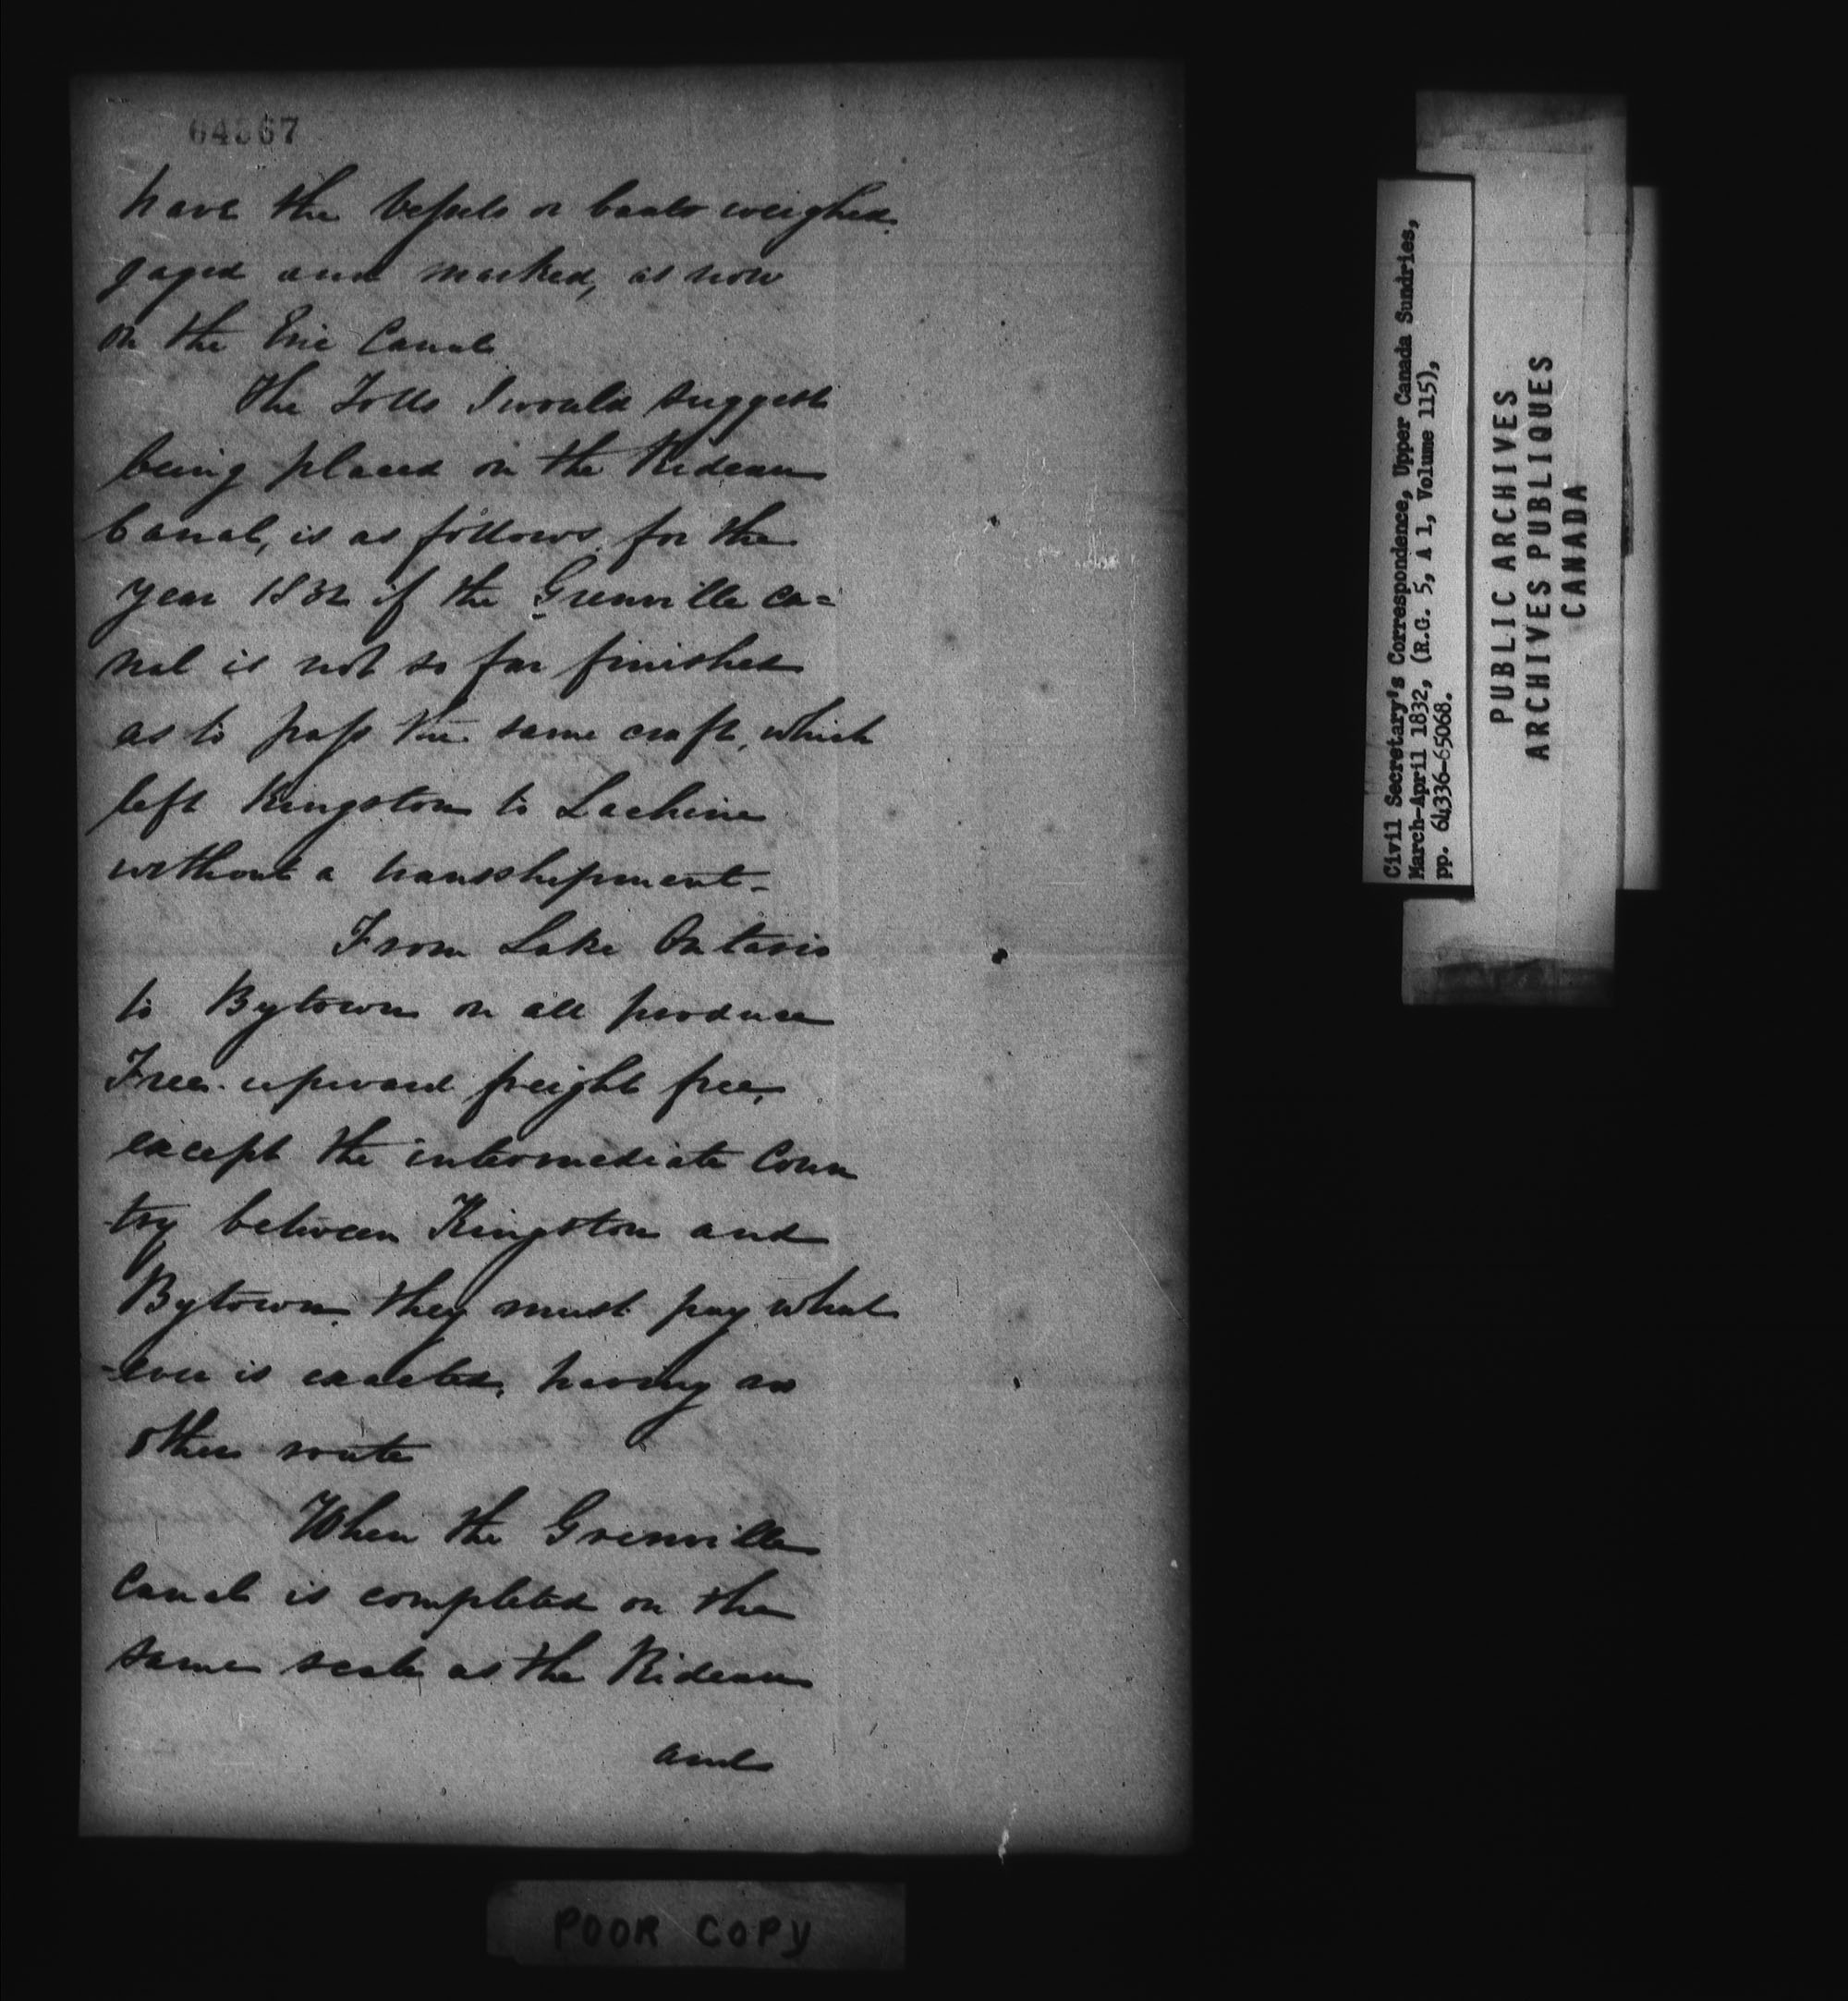 64367
have the Vessels or boats weighed
gaged and marked, as now
on the Erie Canal
The Tolls I would suggest
being placed on the Rideau
Canal, is as follows, for the
year 1832 if the Grenville ca=
nal is not so far finished
as to pass the same craft, which
left Kingston to Lachine
without a transshipment-
From Lake Ontario
to Bytown on all produce
Free. upward freight free,
except the intermediate Coun
-try between Kingston and
Bytown, they must pay what
-ever is exacted, having no
other route
When the Grenville
Canal is completed on the
same scale as the Rideau
and
POOR COPY
Civil Secretary's Correspondence, Upper Canada Sundries,
March-April 1832, (R.G. 5, A 1, Volume 115),
pp. 64336-65068.
PUBLIC ARCHIVES
ARCHIVES PUBLIQUES
CANADA